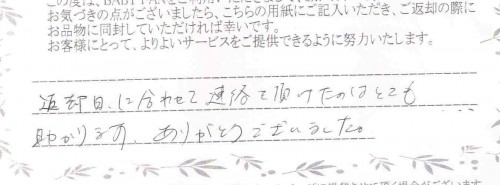 お気づきの点がございましたら、こちらの用紙にご記入いただき、ご返却の際に
お品物に同封していただければ幸いです。
お客様にとって、よりよいサービスをご提供できるように努力いたします。
返却日に合わせて連絡て頂けたのはとても
助かります、ありがとうございました。